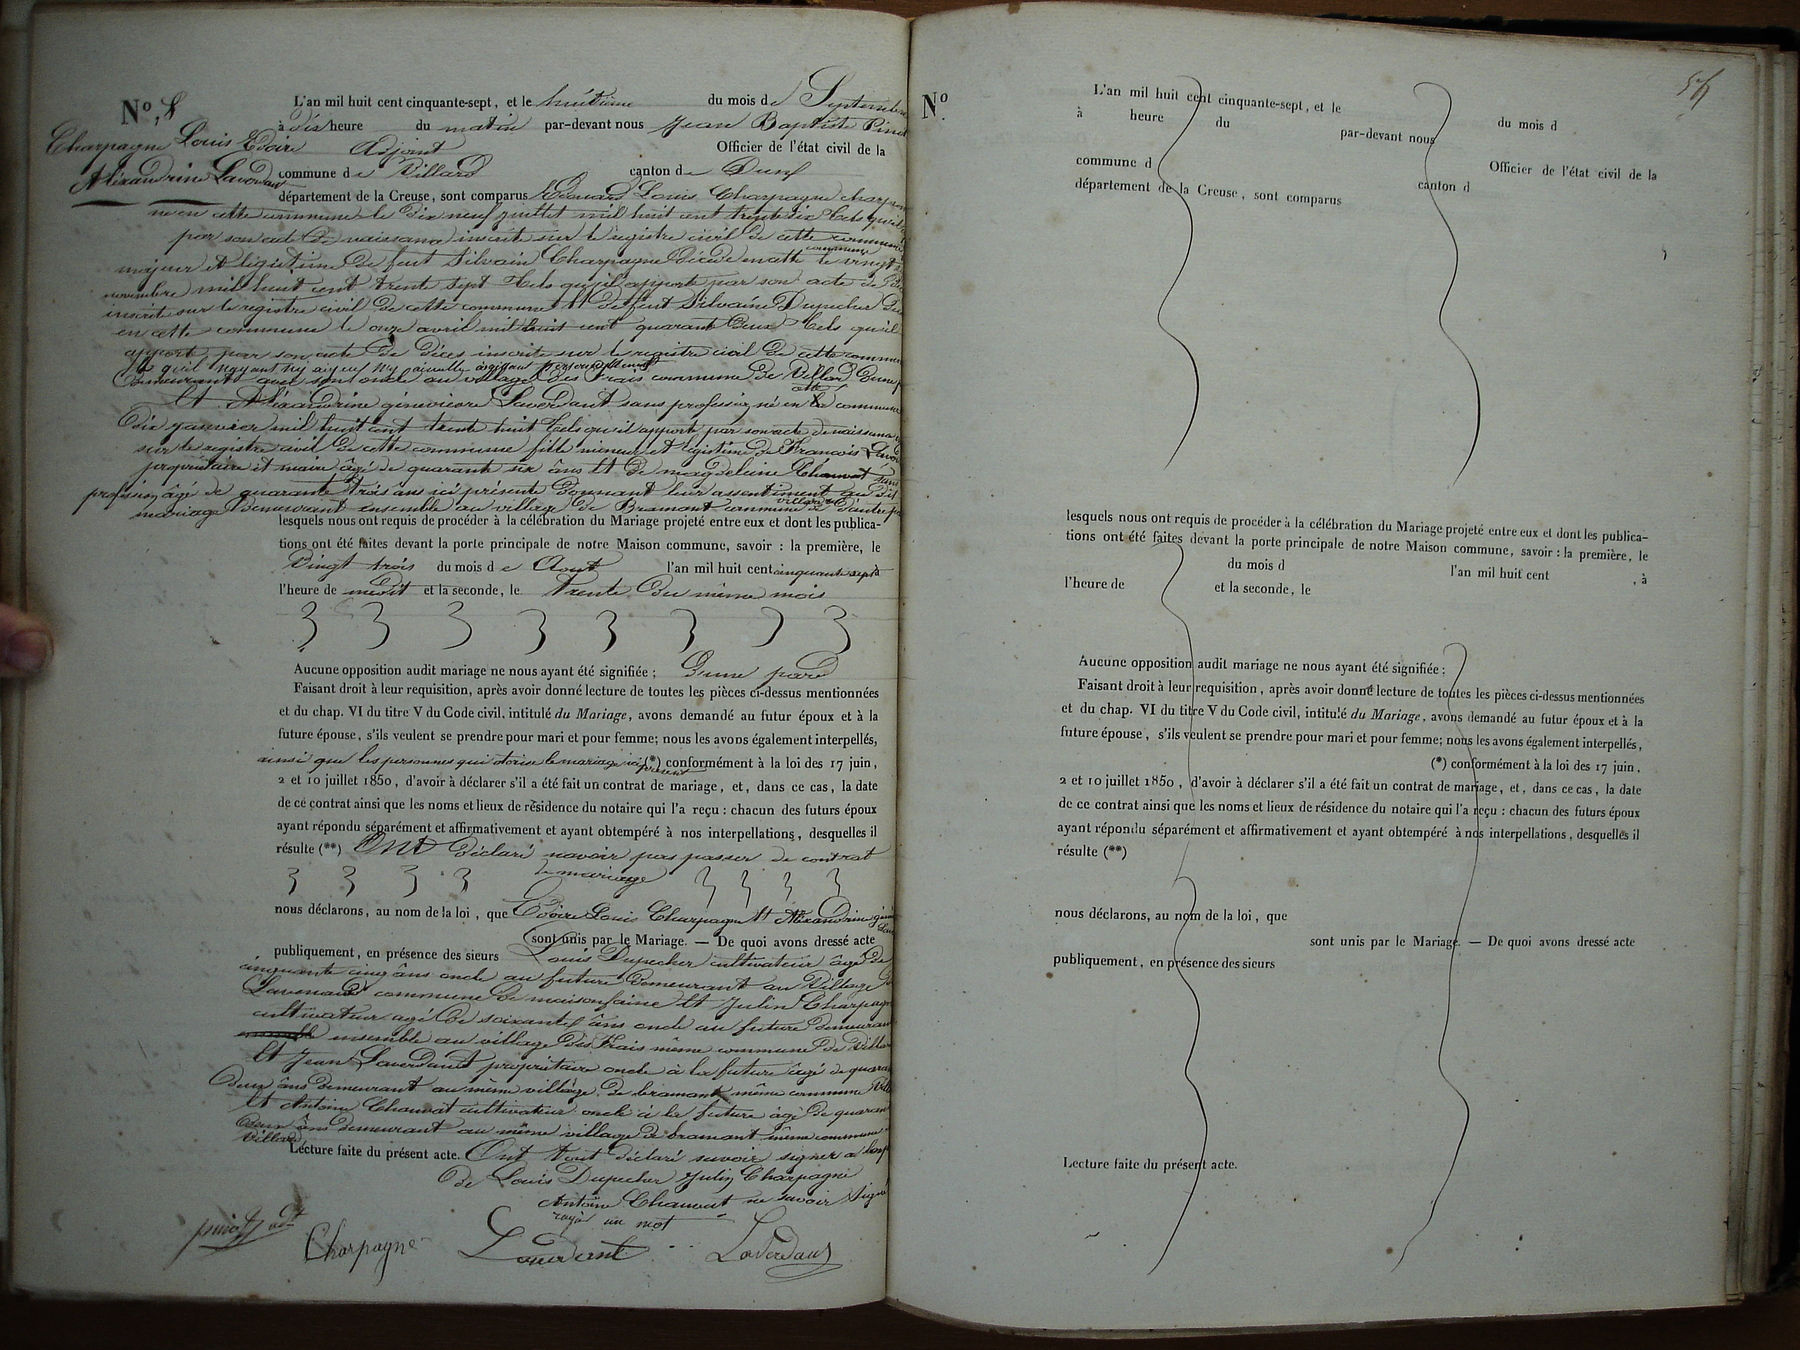 N° 8
Charpagne Louis Edoire
Alixandrine Laverdant
L'an mil huit cent cinquante-sept, et le huitième du mois de Septembre
à dix heure du matin par-devant nous Jean Baptiste Pinot
Adjoint Officier de l'état civil de la
commune de Villard canton de Dun
département de la Creuse, sont comparus Edouard Louis Charpagne
né en cette commune le dix neuf juillet mil huit cent trente six tels qu'il
par son acte de naissance inscrite sur le registre civil de cette commune
majeur et légistime de feut Silvain Charpagne décédé en cette commune le vingt
novembre mil huit cent trente sept tels qu'il apporte par son acte de
inscrite sur le registre civil de cette commune Et de feut Silvaine Dupecher
en cette commune le onze avril mil huit cent quarante deux tels qu'il
apporte par son acte de décès inscrite sur le registre civil de cette commune
qu'il n'ayant ny aieul ny aieulle
Demeurant avec sont oncle au village des Frais commune de Villard d'une
Et Alixandrine géneviève Laverdant sans profession né en cette commune
Dix janvier mil huit cent trente huit tels qu'il apporte par son acte de naissance
sur le registre civil de cette commune fille mineur et légistime de François
propriétaire et maire âgé de quarante six âns Et de magdeleine Chauvat sans
profession âgé de quarante trois ans ici présente donnant leur assentiment au dit
mariage demeurant ensemble au village de Bramont commune de villard d'autre
lesquels nous ont requis de procéder à la célébration du Mariage projeté entre eux et dont les publica-
tions ont été faites devant la porte principale de notre Maison commune, savoir : la première, le
Vingt trois du mois de Aout l'an mil huit cent cinquante sept à
l'heure de et la seconde, le trente du même mois
Aucune opposition audit mariage ne nous ayant été signifiée ; D'une pard
Faisant droit à leur requisition, après avoir donné lecture de toutes les pièces ci-dessus mentionnées
et du chap. VI du titre V du Code civil, intitulé du Mariage, avons demandé au futur époux et à la
future épouse, s'ils veulent se prendre pour mari et pour femme; nous les avons également interpellés,
ainsi que les personnes qui otorise le mariage ici présent (*) conformément à la loi des 17 juin,
2 et 10 juillet 1850, d'avoir à déclarer s'il a été fait un contrat de mariage, et, dans ce cas, la date
de ce contrat ainsi que les noms et lieux de résidence du notaire qui l'a reçu : chacun des futurs époux
ayant répondu séparément et affirmativement et ayant obtempéré à nos interpellations, desquelles il
résulte (**) Ont déclaré navoir pas passer de contrat
de mariage
nous déclarons, au nom de la loi, que Edoire Louis Charpagne Et Alixandrine
sont unis par le Mariage. — De quoi avons dressé acte
publiquement, en présence des sieurs Louis Dupecher cultivateur âgé de
cinquante cinq âns oncle au future demeurant au Village
commune de maisonfaine Et Julin Charpagne
cultivateur agé de soixante âns oncle au future demeurant
ensemble au village des Frais même commune de Villard
Et Jean Laverdant propriétaire oncle à la future âgé de quarante
Deux âns demeurant au même village de bramont même commune
Et Antoine Chauvat cultivateur oncle à la future âgé de quarante
Deux âns demeurant au même village de bramont même commune
Villard
Lecture faite du présent acte. Ont tout déclaré savoir signer a
de Louis Dupecher Julin Charpagne
Antoine Chauvat ne savoir signé
rayé un mot
pinot adt Charpagne Laverdant Laverdant
56
N°
L'an mil huit cent cinquante-sept, et le du mois d
à heure du par-devant nous
Officier de l'état civil de la
commune d canton d
département de la Creuse, sont comparus
lesquels nous ont requis de procéder à la célébration du Mariage projeté entre eux et dont les publica-
tions ont été faites devant la porte principale de notre Maison commune, savoir : la première, le
du mois d l'an mil huit cent , à
l'heure de et la seconde, le
Aucune opposition audit mariage ne nous ayant été signifiée ;
Faisant droit à leur requisition, après avoir donné lecture de toutes les pièces ci-dessus mentionnées
et du chap. VI du titre V du Code civil, intitulé du Mariage, avons demandé au futur époux et à la
future épouse, s'ils veulent se prendre pour mari et pour femme; nous les avons également interpellés,
(*) conformément à la loi des 17 juin,
2 et 10 juillet 1850, d'avoir à déclarer s'il a été fait un contrat de mariage, et, dans ce cas, la date
de ce contrat ainsi que les noms et lieux de résidence du notaire qui l'a reçu : chacun des futurs époux
ayant répondu séparément et affirmativement et ayant obtempéré à nos interpellations, desquelles il
résulte (**)
nous déclarons, au nom de la loi, que
sont unis par le Mariage. — De quoi avons dressé acte
publiquement, en présence des sieurs
Lecture faite du présent acte.